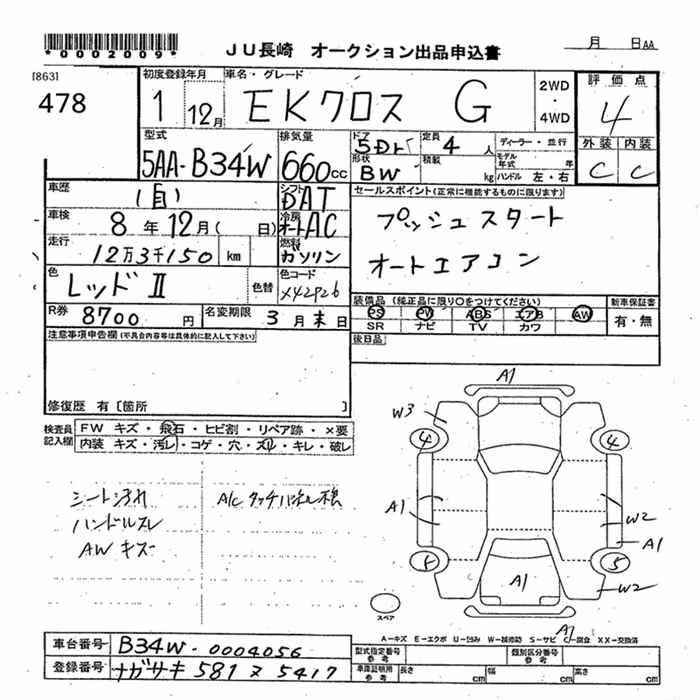 *0002009*
JU長崎 オークション出品申込書
月 日AA
[863]
478
初度登録年月
1 12月
車名・グレード
EKクロス G
2WD
・
4WD
評価点
4
外装 内装
C C
型式
5AA-B34W
排気量
660cc
ドア
5Dr
定員
4人
形状
BW
積載
kg
ディーラー・並行
モデル年式 年
ハンドル 左・右
車歴
(自)
シフト
DAT
セールスポイント(正常に機能するものに限ります)
プッシュスタート
オートエアコン
車検
8年12月( 日)
冷房
オートAC
走行
12万3千150 km
燃料
ガソリン
色
レッドII
色替
色コード
X42P26
R券
8700円
名変期限
3月末日
装備品(純正品に限り○をつけてください)
PS PW ABS エアB AW
SR ナビ TV カワ
新車保証書
有・無
後日品
注意事項申告欄(不具合内容等は具体的に記入して下さい)
修復歴 有〔箇所 〕
検査員記入欄
FW キズ・飛石・ヒビ割・リペア跡・×要
内装 キズ・汚レ・コゲ・穴・スレ・キレ・破レ
シート汚れ
ハンドルスレ
AWキズ
A/Cタッチパネル
A1
W3
4 4
A1
W2
A1
5
A1
W2
スペア
A1
A-キズ E-エクボ U-凹み W-補修跡 S-サビ C-腐食 XX-交換済
車台番号 B34W-0004056
登録番号 ナガサキ 581 ス 5417
型式指定番号
参考
類別区分番号
参考
車庫証明用
参考
長さ cm
幅 cm
高さ cm